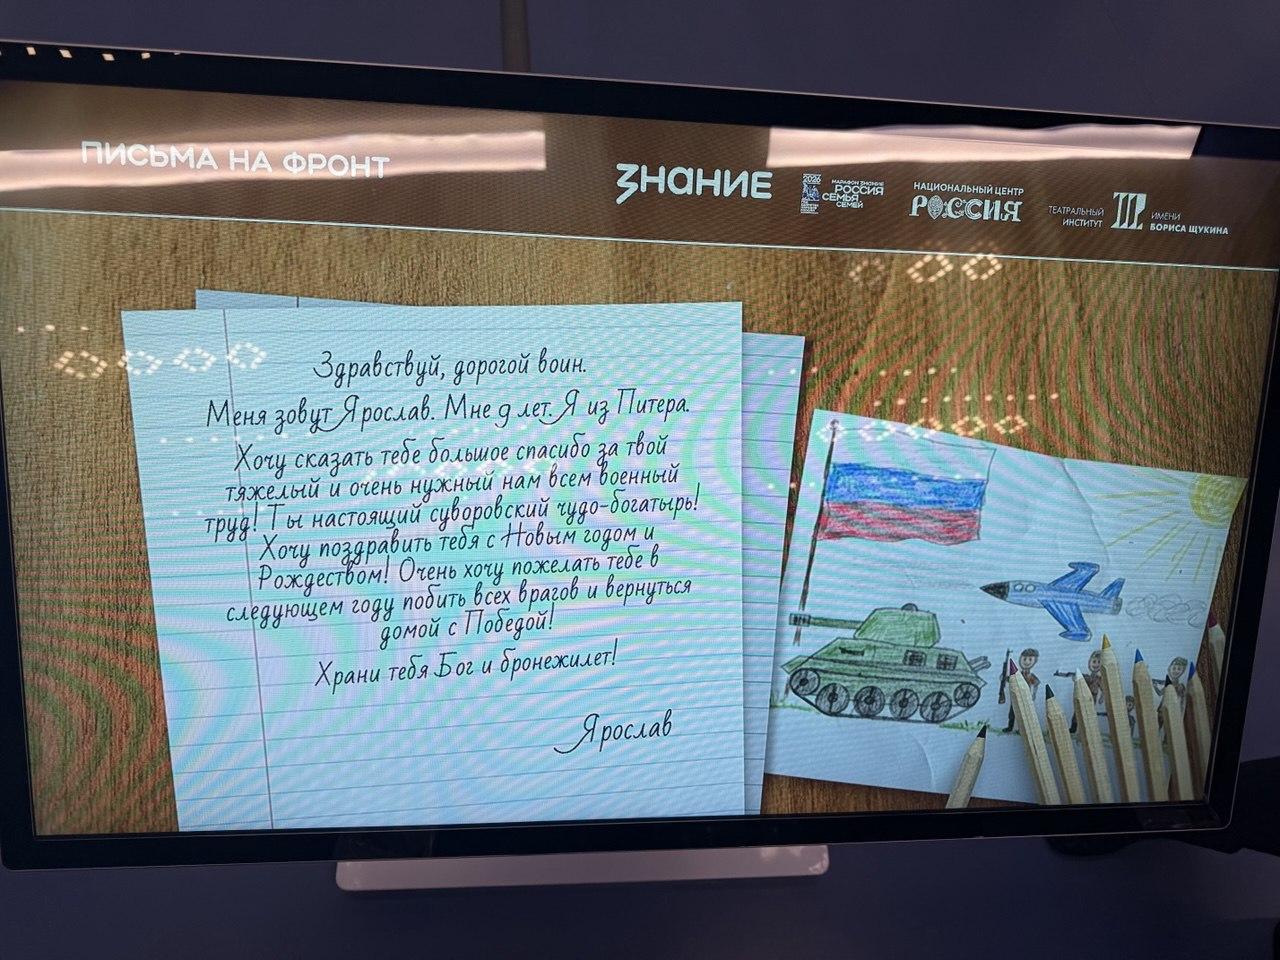 ПИСЬМА НА ФРОНТ
ЗНАНИЕ
2026
МАРАФОН ЗНАНИЕ
РОССИЯ
СЕМЬЯ
СЕМЕЙ
НАЦИОНАЛЬНЫЙ ЦЕНТР
РОССИЯ
ТЕАТРАЛЬНЫЙ
ИНСТИТУТ
ИМЕНИ
БОРИСА ЩУКИНА
Здравствуй, дорогой воин.
Меня зовут Ярослав. Мне 9 лет. Я из Питера.
Хочу сказать тебе большое спасибо за твой
тяжелый и очень нужный нам всем военный
труд! Ты настоящий суворовский чудо-богатырь!
Хочу поздравить тебя с Новым годом и
Рождеством! Очень хочу пожелать тебе в
следующем году побить всех врагов и вернуться
домой с Победой!
Храни тебя Бог и бронежилет!
Ярослав